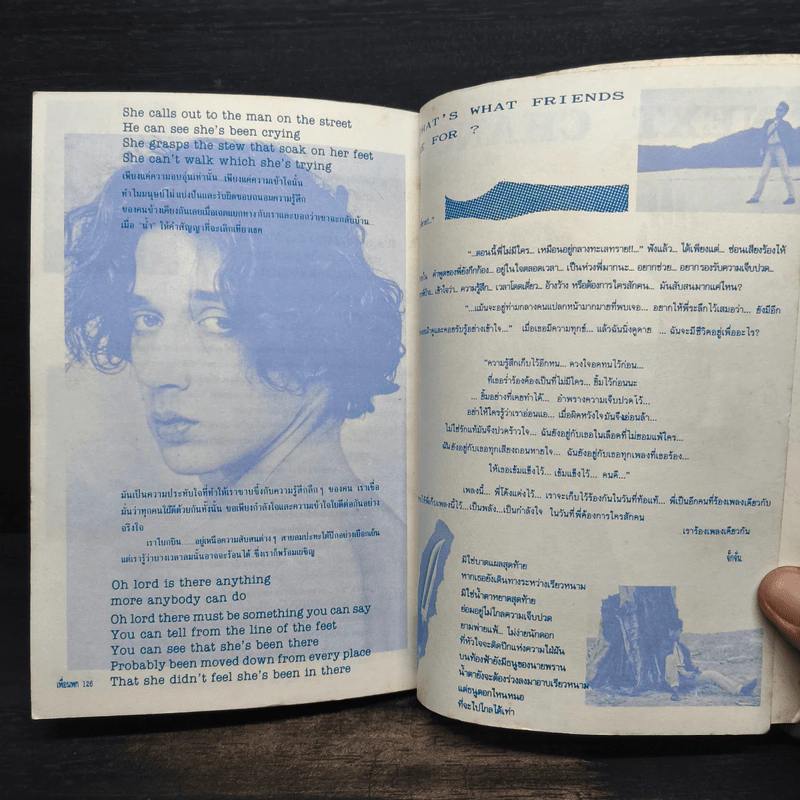 She calls out to the man on the street
He can see she's been crying
She grasps the stew that soak on her feet
She can't walk which she's trying
เพียงแค่ความอบอุ่นเท่านั้น...เพียงแค่ความเข้าใจนั้น
ทำไมมนุษย์ไม่แบ่งปันและรับผิดชอบถนอมความรู้สึก
ของคนข้างเคียงกันเลยเมื่อเจตแยกทางกับเราและบอกว่าเขาจะกลับบ้าน
เมื่อ "น้ำ" ให้คำสัญญาที่จะเลิกเที่ยวเธค
มันเป็นความประทับใจที่ทำให้เราซาบซึ้งกับความรู้สึกลึกๆ ของคน เราเชื่อ
มั่นว่าทุกคนใฝ่ดีด้วยกันทั้งนั้น ขอเพียงกำลังใจและความเข้าใจโยดีต่อกันอย่าง
จริงใจ
เราโบกบิน......อยู่เหนือความสับสนต่างๆ สายลมปะทะใต้ปีกอย่างเยือกเย็น
แต่เรารู้ว่าบางเวลาลมนั้นอาจจะร้อนได้ ซึ่งเราก็พร้อมเผชิญ
Oh lord is there anything
more anybody can do
Oh lord there must be something you can say
You can tell from the line of the feet
You can see that she's been there
Probably been moved down from every place
That she didn't feel she's been in there
เพื่อนพก 126
HAT'S WHAT FRIENDS
FOR ?
"...ตอนนี้พี่ไม่มีใคร... เหมือนอยู่กลางทะเลทราย!!..." ฟังแล้ว... ได้เพียงแต่... ซ่อนเสียงร้องไห้
คำพูดของพี่ยังกึกก้อง... อยู่ในใจตลอดเวลา... เป็นห่วงพี่มากนะ... อยากช่วย... อยากรองรับความเจ็บปวด...
เข้าใจว่า... ความรู้สึก... เวลาโดดเดี่ยว... อ้างว้าง หรือต้องการใครสักคน... มันสับสนมากแค่ไหน?
"...แม้นจะอยู่ท่ามกลางคนแปลกหน้ามากมายที่พบเจอ... อยากให้พี่ระลึกไว้เสมอว่า... ยังมีอีก
และคอยรับรู้อย่างเข้าใจ..." เมื่อเธอมีความทุกข์... แล้วฉันนิ่งดูดาย ... ฉันจะมีชีวิตอยู่เพื่ออะไร?
"ความรู้สึกเก็บไว้อีกหน... ดวงใจอดทนไว้ก่อน...
ที่เธอร่ำร้องต้องเป็นที่ไม่มีใคร... ยิ้มไว้ก่อนนะ
... ยิ้มอย่างที่เคยทำได้... อำพรางความเจ็บปวดไว้...
อย่าให้ใครรู้ว่าเราอ่อนแอ... เมื่อผิดหวังใจมันจึงอ่อนล้า...
ไม่ใช่รักแท้มันจึงปวดร้าวใจ... ฉันยังอยู่กับเธอในเลือดที่ไม่ยอมแพ้ใคร...
ฉันยังอยู่กับเธอทุกเสียงถอนหายใจ... ฉันยังอยู่กับเธอทุกเพลงที่เธอร้อง...
ให้เธอเข้มแข็งไว้... เข้มแข็งไว้... คนดี..."
เพลงนี้... พี่โด้งแต่งไว้... เราจะเก็บไว้ร้องกันในวันที่ท้อแท้... พี่เป็นอีกคนที่ร้องเพลงเดียวกับ
เก็บเพลงนี้ไว้...เป็นพลัง...เป็นกำลังใจ ในวันที่พี่ต้องการใครสักคน
เราร้องเพลงเดียวกัน
จั๊กจั่น
มิใช่บาดแผลสุดท้าย
หากเธอยังเดินทางระหว่างเรียวหนาม
มิใช่น้ำตาหยาดสุดท้าย
ย่อมอยู่ไม่ไกลความเจ็บปวด
ยามพ่ายแพ้... ไม่ง่ายนักดอก
ที่หัวใจจะติดปีกแห่งความใฝ่ฝัน
บนท้องฟ้ายังมีธนูของนายพราน
น้ำตายังจะต้องร่วงลงมาอาบเรียวหนาม
แต่ธนูดอกไหนหนอ
ที่จะไปไกลได้เท่า